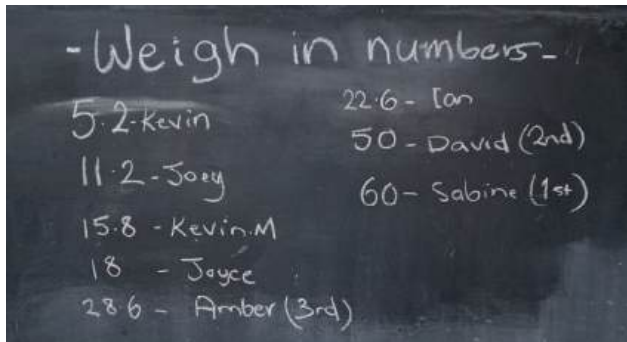 -Weigh in numbers-
5.2-Kevin
11.2-Joey
15.8 -Kevin.M
18 - Joyce
28 6 - Amber (3rd)
22.6- Ian
50 - David (2nd)
60- Sabine (1st)